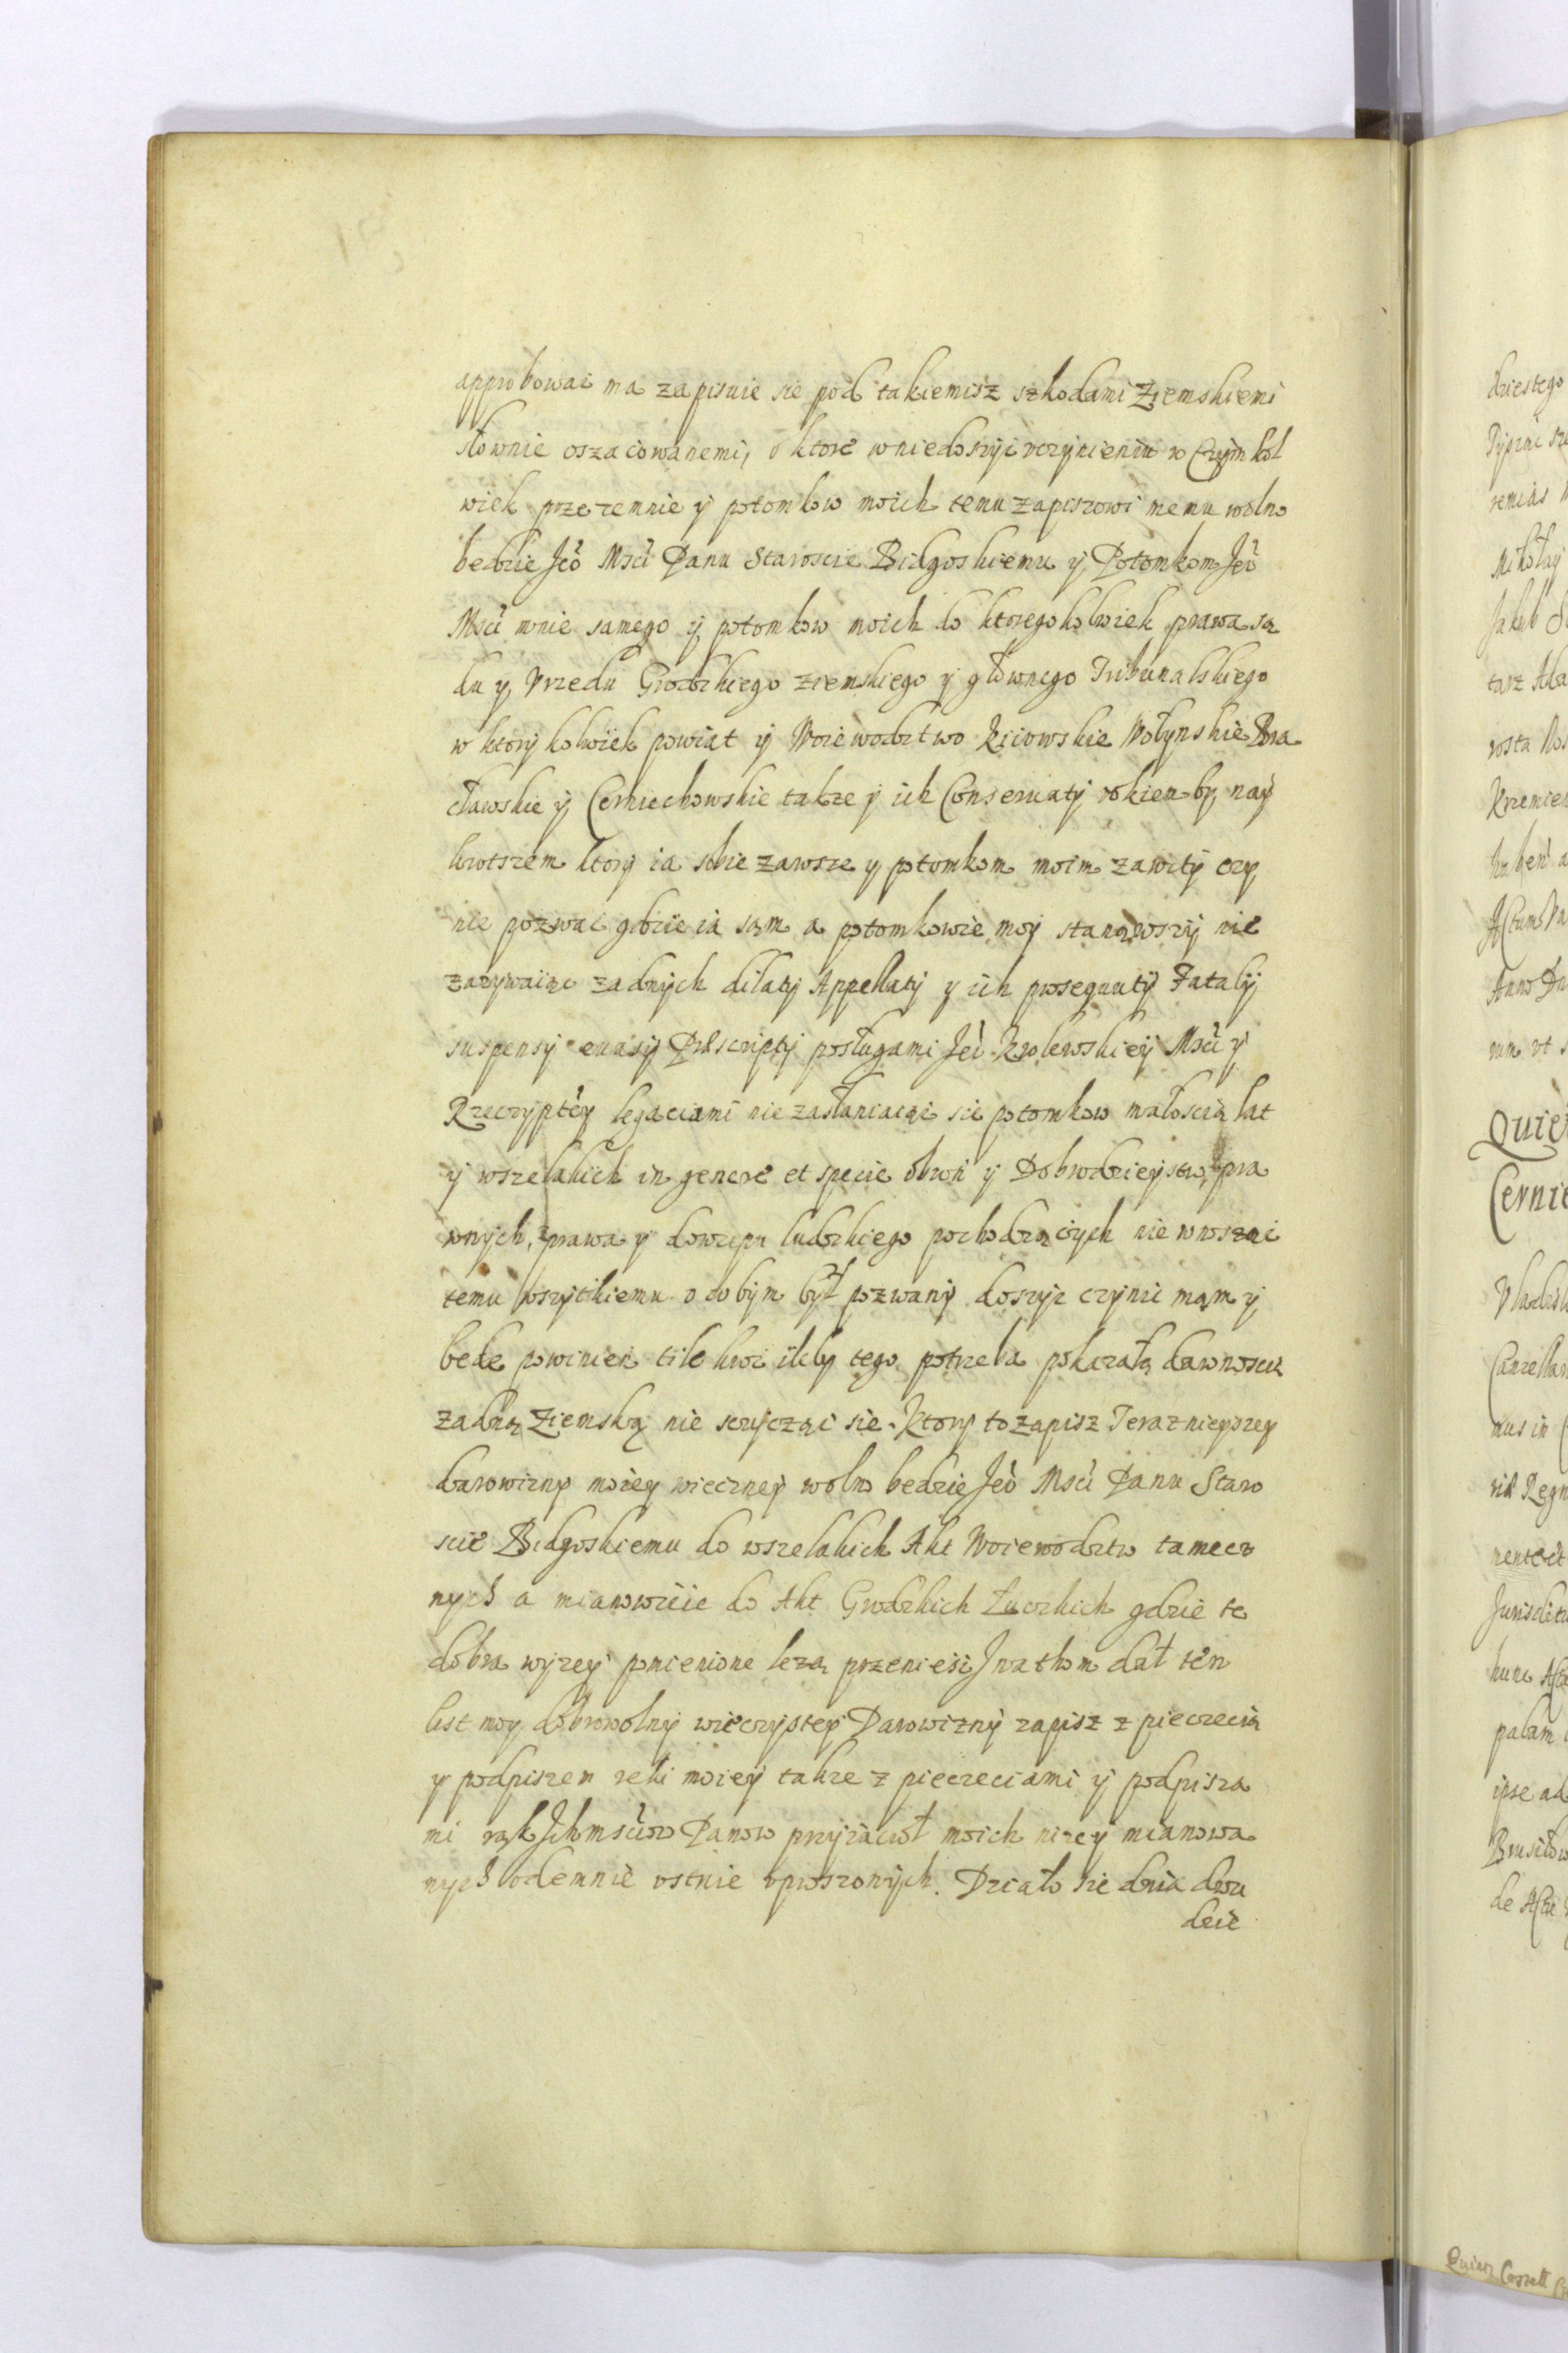 approbowac ma zapisuie sie pod takiemisz szkodami Ziemskiemi
słownie oszacowanemi, o ktore w niedosyc vczynieniu w Czym kol
wiek przezemnie y potomkow moich temu zapiszowi memu wolno
bedzie Jeo Msci Panu Staroscie Bidgoskiemu y Potomkom Jeo
Msci mnie samego y potomkow moich do ktoregokolwiek prawa są
du y Vrzedu Grodzkiego ziemskiego y głownego Tribunalskiego
w ktorykolwiek powiat y Woiewodztwo Kiiowskie Wołynskie Bra
cławskie y Cerniechowskie takze y ich Conseruaty rokiem by nay
krotszem ktory ia sobie zawsze y potomkom moim zawity czy
nie pozwac gdzie ia sam a potomkowie moy stanąwszy nie
zazywaiąc zadnych dilaty Appellaty y ich prosequuty Fataly
suspensy euasy Præscripty posługami Jeo Krolewskiey Msci y
Rzeczyptey legaciami nie zasłaniaiąc sie potomkow małoscią lat
y wszelakich in genere et specie obron y Dobrodzieystw pra
wnych, z prawa y dowcipu ludzkiego pochodzących nie wnosząc
temu wszytkiemu o co bym był pozwany dosyc czynic mam y
bede powinien tile kroc ileby tego potrzeba pokazała dawnoscią
zadną Ziemską nie szczycząc sie. Ktory to zapisz Terazniepszey
darowizny moiey wieczney wolno bedzie Jeo Msci Panu Staro
scie Bidgoskiemu do wszelakich Akt Woiewodztw tamecz
nych a mianowicie do Akt Grodzkich Łuczkich gdzie te
dobra wyzey pomienione leżą przeniesc J na tkom dał ten
list moy dobrowolny wieczystey Darowizny zapisz z pieczecią
y podpiszem reki moiey takze z pieczeciami y podpisza
mi rąk Ichmsciow Panow przyiacioł moich nizey mianowa
nych odemnie vstnie vproszonych. Działo sie dnia dwu
dzie
dziestego
Mikołay
Jakub
tarz
rosta
Krzemien
Actum
Anno
rum vt
Quie
Cernie
Vladisl
Cancellar
mus in
Regn
hunc
palam
ipse ad
Brusiłow
de